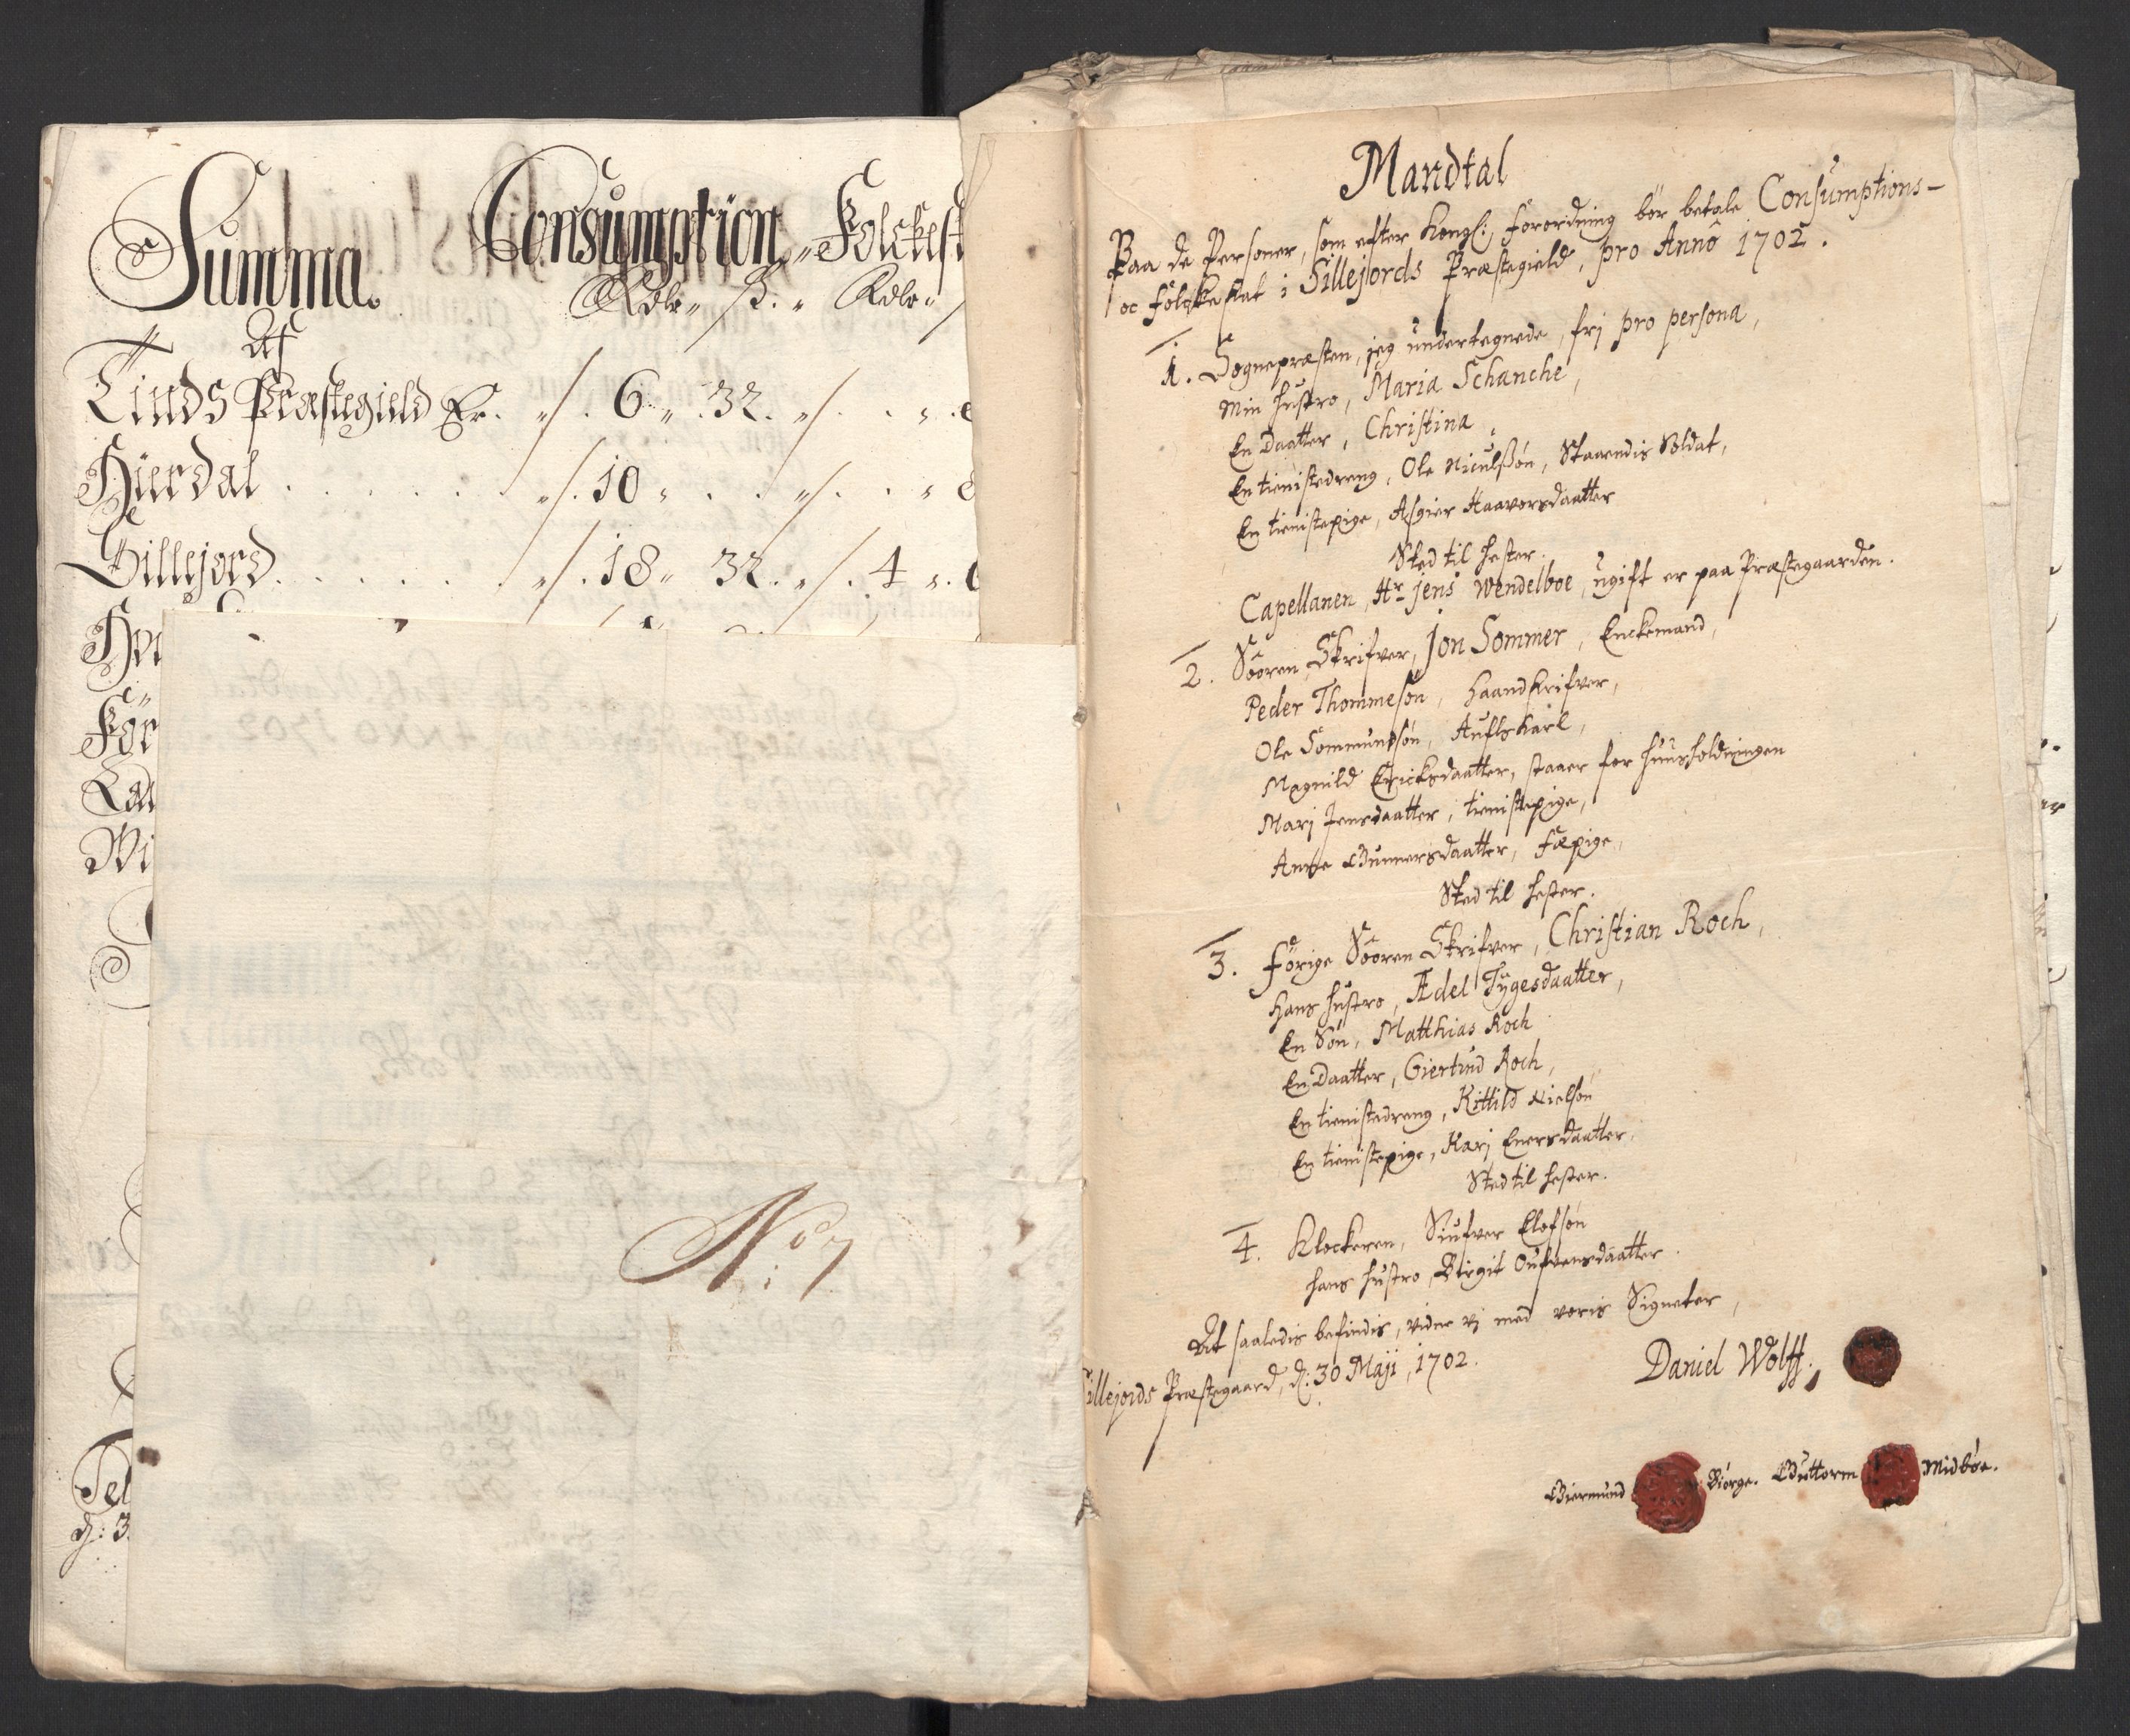 Summa. Consumption „ Folckesk
Rdlr „ ß. „ Rdlr „
Af
Tinds Præstegield Er. „/. 6 „ 32. „/.
Hierdal „/. 10 „ „/.
Sillejord „/. 18 „ 32. „/. 4 „
För
Lau
Wi
Tel
d: 3
No: 7
Mandtal
Paa de Personer, som efter Kongl: forordning bör betale Consumptions-
oc folckeskat i Sillejords Præstegield, pro Annô 1702.
1. Sognepræsten, jeg undertegnede, frj pro persona,
Min hustro, Maria Schanche,
En Daatter, Christina,
En tienistedreng, Ole Niculßön, Staaendis Soldat,
En tienistepige, Asgier Haavorsdaatter
Sted til hester.
Capellanen, Hr Jens Wendelboe, ugift er paa Præstegaarden.
2. Sooren Skrifver, Jon Sommer, Enckemand,
Peder Thommesön, haandskrifver,
Ole Sommundsön, Auflskarl,
Magnild Ericksdaatter, staaer for huusholdningen
Marj Jensdaatter, tienistepige,
Anne Gunnersdaatter, fæpige,
Sted til hester.
3. forige Sooren Skrifver, Christian Roch,
Hans hustro, Ædel Tygesdaatter,
En Sön, Matthias Roch
En Daatter, Giertrud Roch,
En tienistedreng, Kittild Nielsön
En tienistepige, Karj Enersdaatter,
Sted til hester.
4. Klockeren, Siufver Elofsön
hans hustro, Birgit Oufvensdaatter
At saaledis befindis, vidne vj med voris Signeter,
illejords Præstegaard, d: 30 Maji, 1702.
Daniel Wolff.
Giermund Biörge. Guttorm Midböe.